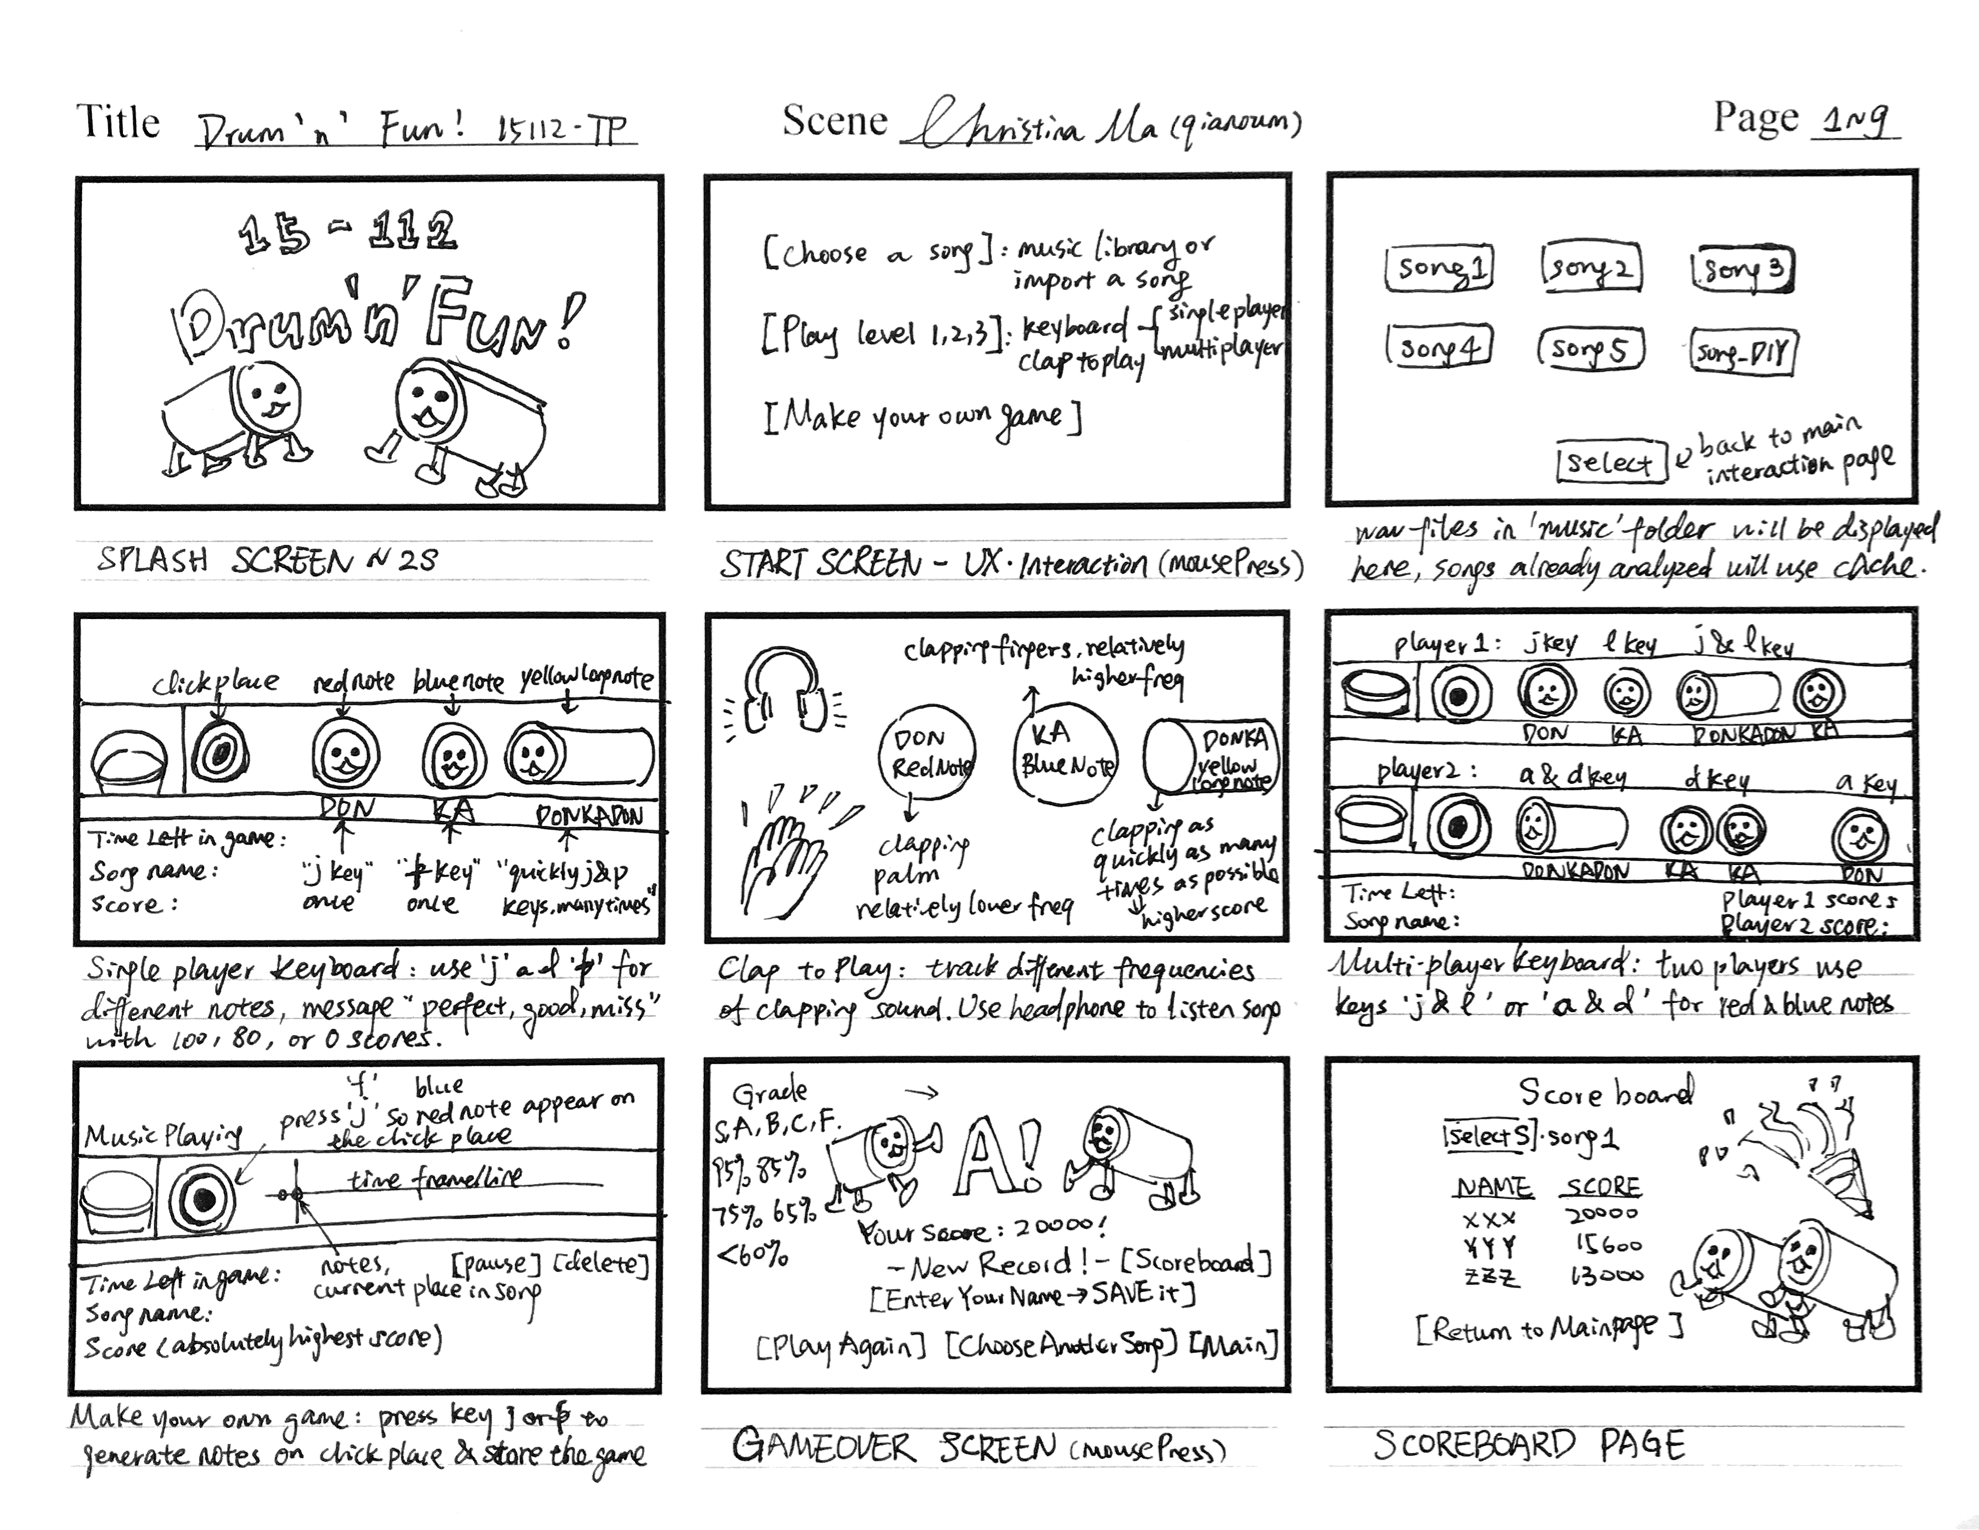 Title Drum 'n' Fun! 15112-TP
Scene Christina Ma (qianoum)
Page 1~9
15-112
Drum 'n' Fun!
SPLASH SCREEN ~ 2S
[Choose a song]: music library or
import a song
[Play level 1,2,3]: keyboard
single player
multiplayer
clap to play
[Make your own game]
START SCREEN - UX. Interaction (mousePress)
song1
song2
song3
song4
song5
song_DIY
select
back to main
interaction page
wav files in 'music' folder will be displayed
here, songs already analyzed will use cache.
click place
red note
blue note
yellow long note
DON
KA
DONKADON
Time Left in game:
Song name:
Score:
"j key"
once
key"
once
"quickly j&p
keys, many times"
Single player keyboard: use 'j' ad for
different notes, message "perfect, good, miss"
with 100, 80, or 0 scores.
clapping fingers, relatively
higher freq
DON
Red Note
KA
Blue Note
DONKA
yellow
long note
clapping
palm
relatively lower freq
clapping as
quickly as many
times as possible
higher score
Clap to Play: track different frequencies
of clapping sound. Use headphone to listen song
player 1:
j key
l key
j & l key
DON
KA
DONKADON
KA
player 2:
a & d key
d key
a key
DONKADON
KA
KA
DON
Time Left:
Song name:
Player 1 scores
Player 2 score:
Multi-player keyboard: two players use
keys 'j & l' or 'a & d' for red & blue notes
'f' blue
press 'j' so red note appear on
the click place
Music Playing
time frame/line
notes,
current place in song
[pause] [delete]
Time Left in game:
Song name:
Score (absolutely highest score)
Make your own game: press key j or to
generate notes on click place & store the game
Grade
S, A, B, C, F.
95% 85%
75% 65%
<60%
A!
Your score: 20000!
- New Record! - [Scoreboard]
[Enter Your Name → SAVE it]
[Play Again] [Choose Another Song] [Main]
GAMEOVER SCREEN (mousePress)
Score board
[select S]. song 1
NAME SCORE
XXX 20000
YYY 15600
ZZZ 13000
[Return to Mainpage]
SCOREBOARD PAGE